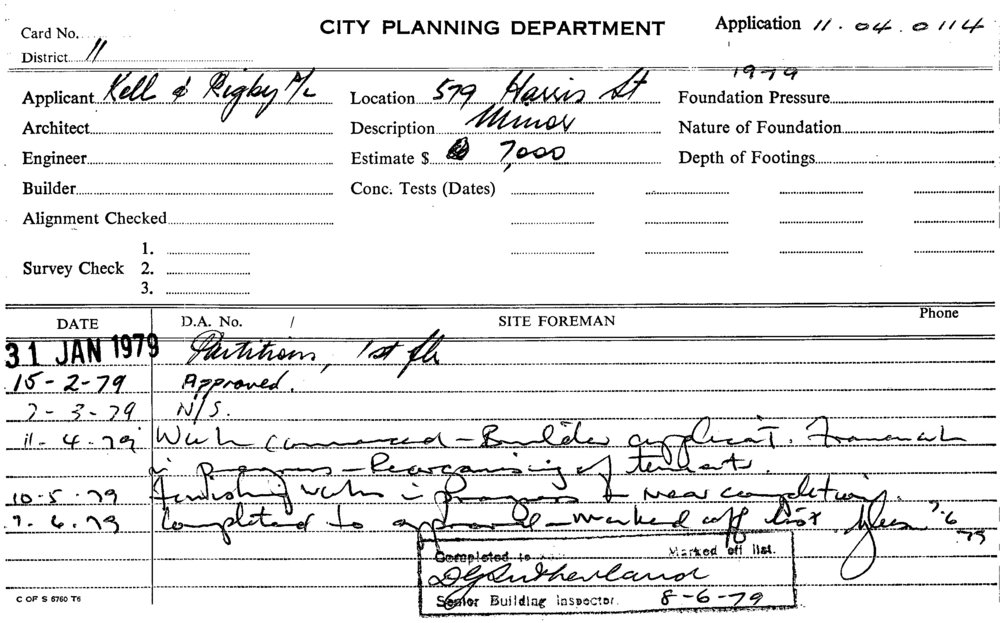 CITY PLANNING DEPARTMENT
Card No.
Application 11.04.0114
District 11
1979
Applicant Kell & Rigby P/L
Location 579 Harris St
Foundation Pressure
Architect
Description Minor
Nature of Foundation
Engineer
Estimate $ 7,000
Depth of Footings
Builder
Conc. Tests (Dates)
Alignment Checked
Survey Check 1.
2.
3.
DATE D.A. No. / SITE FOREMAN Phone
31 JAN 1979 Partitions, 1st flr
15-2-79 Approved.
7-3-79 N/S.
11-4-79 Work commenced - Builder applicant. Framework
in progress - Rearranging of tenants.
10-5-79 Finishing works in progress & near completion.
7.6.79 Completed to approval - marked off list. 7.6
79
Completed to Marked off list.
D G Sutherland
Senior Building Inspector. 8-6-79
C OF S 6760 T6